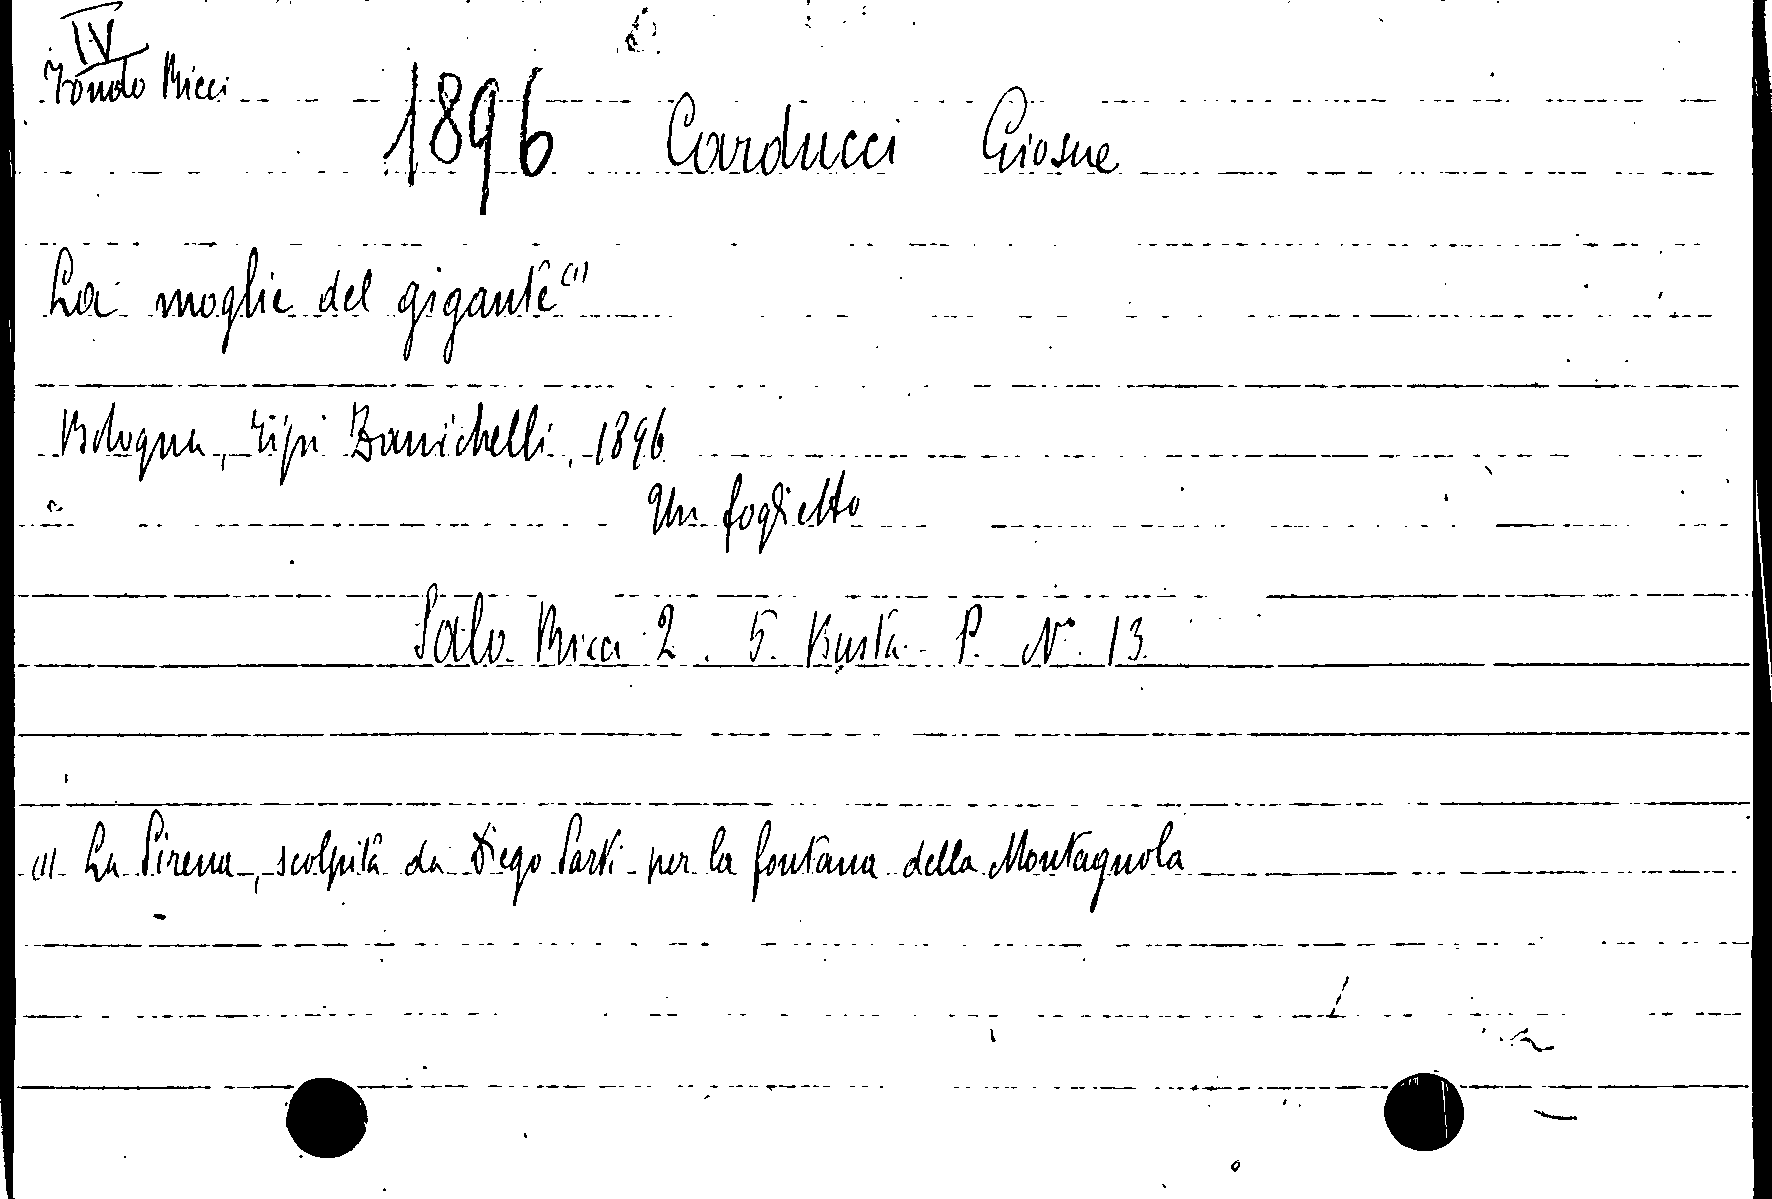 IV
Fondo Ricci
1896 Carducci Giosue
La moglie del gigante (1)
Bologna, Tipi Zanichelli, 1896
Un foglietto
Sala Ricci 2. 5. Busta P. N° 13
(1) La Sirena, scolpita da Diego Sarti per la fontana della Montagnola